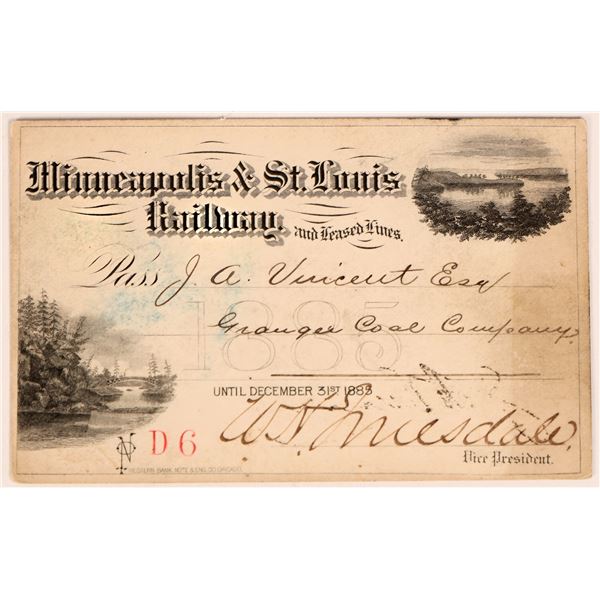 Minneapolis & St. Louis
Railway, and Leased Lines.
Pass J. A. Vincent Esq
1885
Granger Coal Company
UNTIL DECEMBER 31ST 1885
No D 6
W. H. Truesdale.
Vice President.
WESTERN BANK NOTE & ENG. CO CHICAGO.